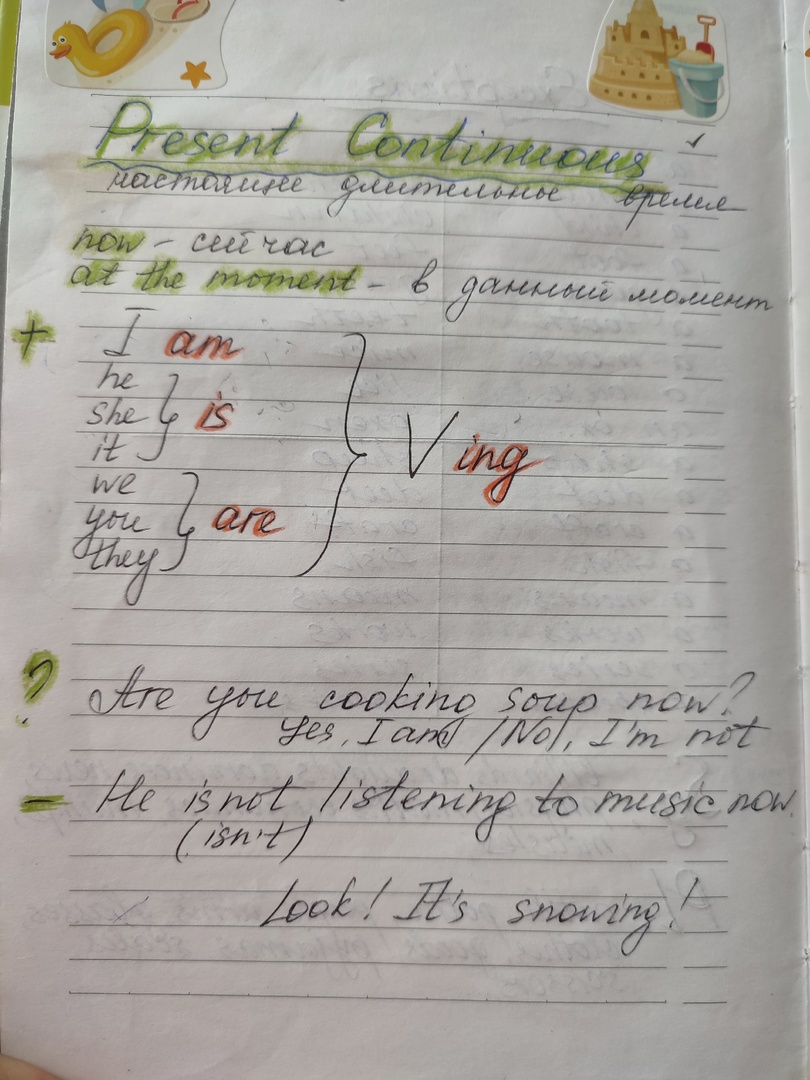 Present Continuous
настоящее длительное время
now - сейчас
at the moment - в данный момент
+ I am
he
she is
it
V ing
we
you are
they
? Are you cooking soup now?
Yes, I am / No, I'm not
- He is not listening to music now.
(isn't)
Look! It's snowing!